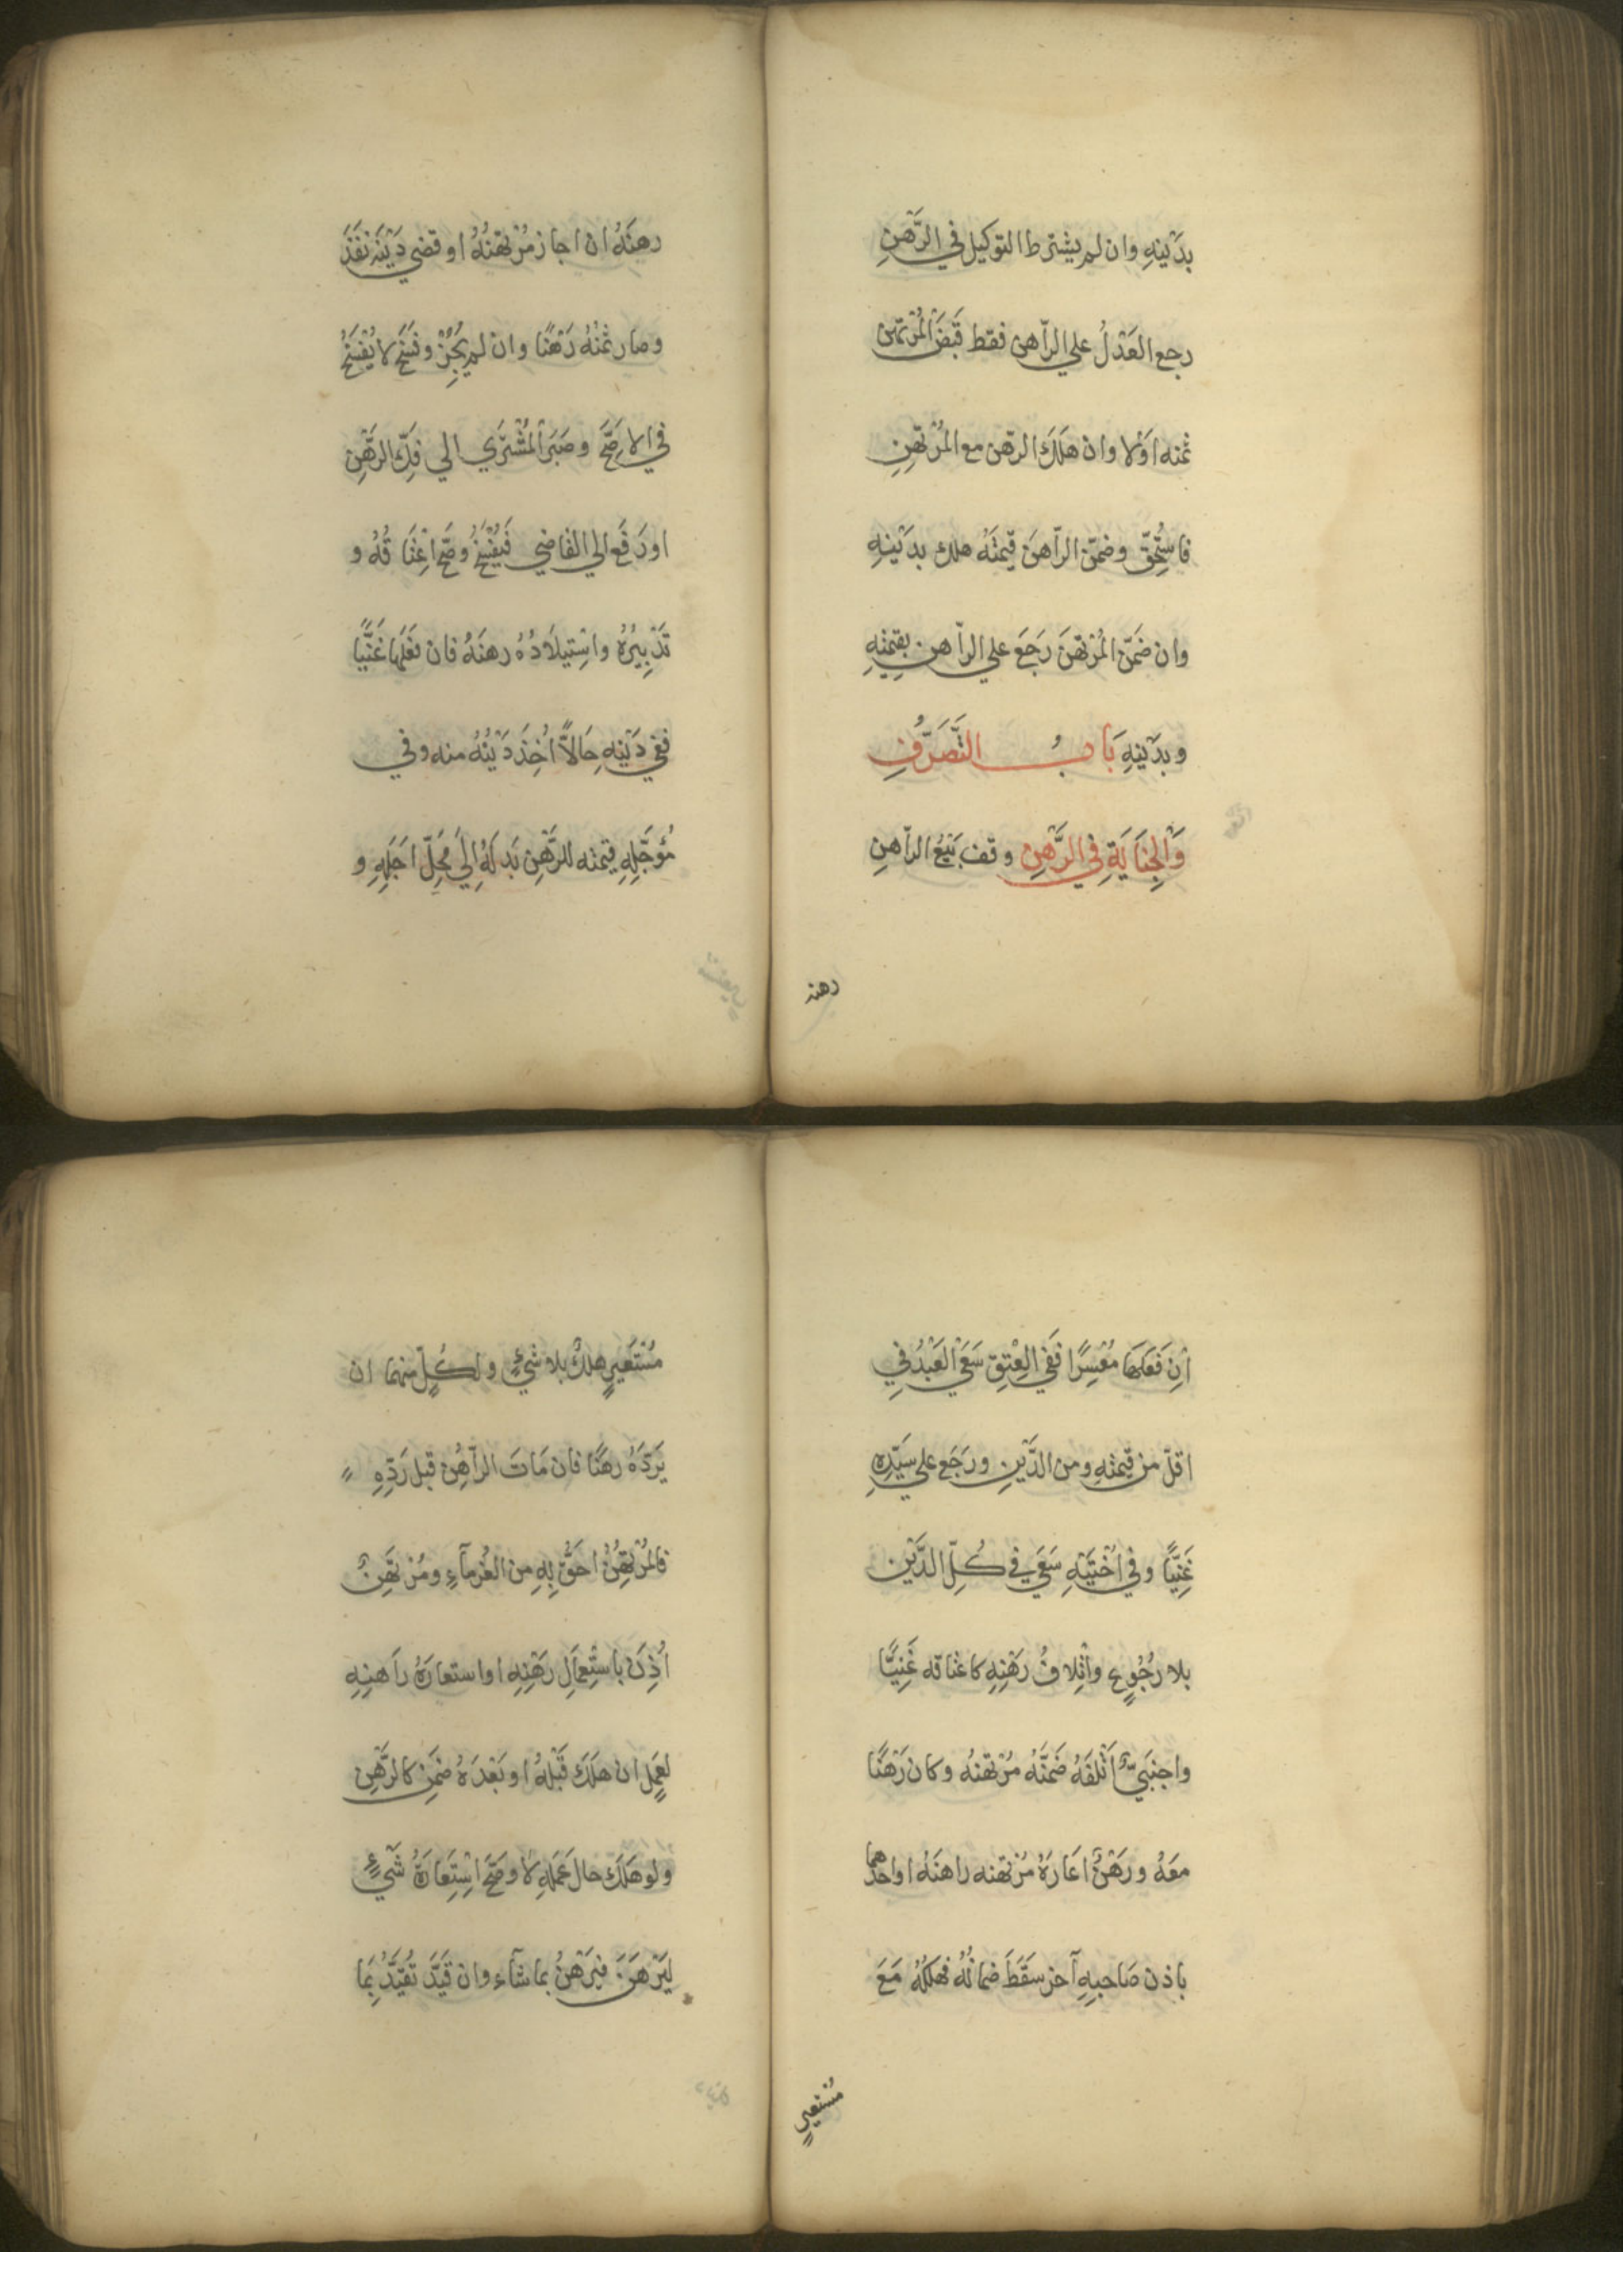 بدَيْنِهِ وان لم يشترط التوكيل في الرَّهنِ
رجع العَدْلُ على الرّاهن فقط قَبَضَ الْمُرْتَهن
ثمنه اوْلا وان هَلَكَ الرهن مع المُرْتَهِنِ
فاستُحِقّ وضمّن الرّاهنَ قيمتَهُ هلك بدَيْنِهِ
وان ضمّن المُرْتَهنَ رَجَعَ علي الرّاهن بقيمتِهِ
وبدَيْنِهِ بَابُ التَّصَرُّفِ
وَالْجِنَايَةِ فِي الرَّهْنِ وقف بَيْعُ الرّاهنِ
رهنه
رهنَهُ ان اجاز مُرْتهنُهُ او قضي دَيْنَه نَفَذَ
وصار ثمنُهُ رَهْنًا وانْ لم يُجِزْ وفَسَخَ لا يُفْسَخُ
في الاصَحِّ وصَبَرَ الْمُشْتَرِي الي فَكِّ الرَّهْنِ
اورَفَعَ الي القاضي فَيُفْسَخُ وصَحَّ اعْتَاقُهُ و
تَدْبِيرُهُ واسْتِيلاَدُهُ رهنَهُ فان فَعَلَهَا غَنِيًّا
ففِي دَيْنِهِ حَالاًّ اُخِذَ دَيْنُهُ منه وفي
مُؤَجَّلِهِ قيمته للرَّهْنِ بَدَلَهُ اِلَي مَحِلِّ اَجَلِهِ و
اِنْ فَعَلَهَا مُعْسِرًا فَفي العِتْقِ سَعَي العَبْدُ فِي
اقلّ من قيمتِهِ ومن الدَّيْنِ ورَجَعَ علي سَيِّدِهِ
غَنِيًّا وفي اُخْتَيْهِ سَعَي في كُلِّ الدَّيْن
بلا رُجُوعٍ واتْلافُ رَهْنِهِ كاعتاقه غَنِيًّا
واجنَبيٌّ اَتْلَفَهُ ضَمَّنَهُ مُرْتهنُه وكان رَهْنًا
معَهُ ورهْنٌ اعَارَهُ مُرْتهنه راهنَهُ او احدهما
باذن صَاحبِهِ آخر سَقَطَ ضمانُهُ فهلكُهُ مَعَ
مُسْتعيرٍ
مُسْتَعيرٍ هلكٌ بلا شَيْءٍ ولكُلٍّ منهما ان
يَرُدَّهُ رهنًا فان مَاتَ الرّاهِنُ قبل رَدِّهِ
فالمُرْتَهِنُ احَقُّ بِهِ من الغُرَمآءِ ومُرْتَهِنٌ
اُذِنَ باستْعِمَالِ رَهْنِهِ او استعارَهُ رَاهنِهِ
لِعَمَلٍ ان هَلَكَ قَبْلَهُ او بَعْدَهُ ضمِنَ كالرَّهْنِ
ولو هَلَكَ حال عَمَلِهِ لاَ وصَحَّ اسْتِعَارَةُ شَيْءٍ
لِيَرْهَنَ فيَرْهَنُ بما شآء وان قَيَّدَ تَقَيَّدَ بِمَا